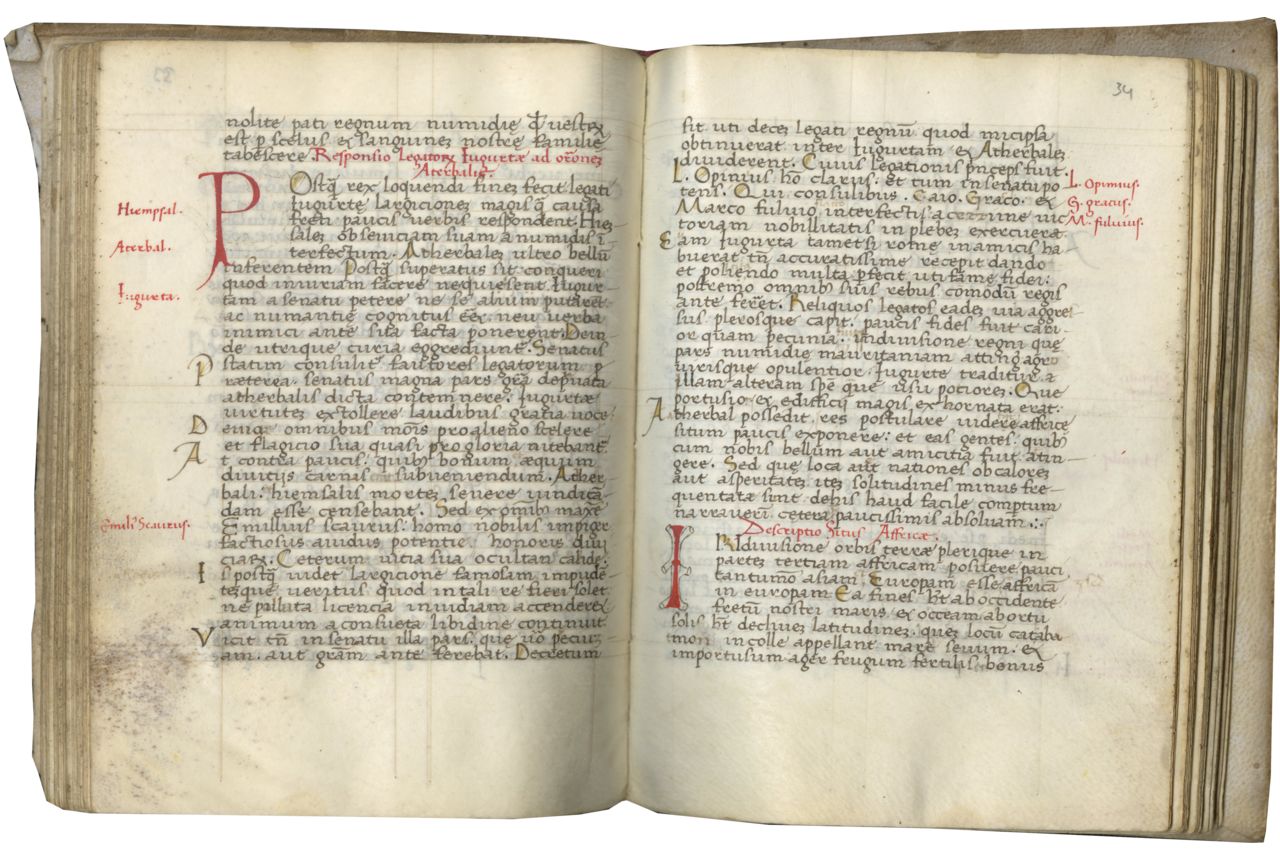 nolite pati regnum numidię Q̄ uestrꝝ
est p̲ scelus ex sanguineʒ nostre familie
tabescere. Responsio Legatorꝝ Iugurtæ ad or̄oneʒ
Aterbalis.
POstq̄ rex loquendi fineʒ fecit legati
Iugurte largicioneʒ magis q̄ causa
freti paucis uerbis respondent. Hiē
saleʒ obseuiciam suam a numidis i
terfectum. Atherbaleʒ ultro bellū
Inferentem Postq̄ superatus sit conqueri
quod iniuriam facere nequiesenit. Iugur
tam a senatu petere ne se alium putarēt
ac numantię cognitus eēt neu uerba
inimici ante sita facta ponerent. Dein
de utrique curia eggrediunt̄. Senatus
statim consulit̄ fautores legatorum p
Preterea senatus magna pars gr̄a dep̄uata
atherbalis dicta contemnere. Iugurtæ
uirtuteʒ extollere laudibus gratia uoce
Denique omnibus mōis pro alieno scelere
et flagicio sua quasi pro gloria nitebant̄
At contra paucis quibꝰ bonum æquum
diuicijs carius subueniendum. Adher
bali hiemsalis morteʒ seuere iundicā
dam esse censebant. Sed ex om̄ibꝰ maxe
Emillius scaurus homo nobilis impiger
factiosus auidus potentie honoris diui
ciarꝝ. Ceterum uitia sua ocultan calide
Is postq̄ uidet largicione famosam impudē
teʒque ueritus quod in tali re fieri solet
ne palluta licencia inuidiam accendereʒ
animum a consueta libidine continuit
Vicit tn̄ in senatu illa pars que uo pecuī
am aut grām ante ferebat. Decretum
Huempsal.
Aterbal.
Iugurta.
Emilꝰ Scaurus.
34
fit uti deceʒ legati regnū quod micipsa
obtinuerat inter Iugurtam ex Atherbaleʒ
diuiderent. Cuius legationis p̄nceps fuit
L. Opinius hō clarus et tum in senatu po
tens. Qui consulibus. Gaio. Graco. ex
Marco fuluio interfectis acerrime uic
toriam nobillitatis in plebeʒ exercuerat
Eam Iugurta tametsi rome in amicis ha
buerat tn̄ accuratissime recepit dando
et poliendo multa p̲fecit uti fame fidei
postremo omnibꝰ suis rebus comōdū regis
ante feret̄. Reliquos legatos eadeʒ uia aggres
sus plerosque capit. paucis fides fuit cari
or quam pecunia. in diuisione regni quę
pars numidie mauritaniam atting agro
uirisque opulentior Iugurte traditur a
illam alteram spe que usu potiores. Que
portusio ex edifficij magis ex hornata erat
Atherbal possedit res postulare uidet̄ affrice
situm paucis exponere: et eas gentes quibꝰ
cum nobis bellum aut amicitia fuit atin
gere. Sed que loca aut nationes ob caloreʒ
aut asperitateʒ iteʒ solitudines minus fre
quentatæ sunt de his haud facile comptum
narrauerī cetera paucissimis absoluam.
Descriptio Situs Affricæ.
IN diuisione orbis terræ plerique in
parteʒ tertiam affricam posuere pauci
tantum̄o asiam. Europam esse affricā
in europam Ea fines hꝫt ab occidente
fretū nostri maris ex occeam abortu
solis hꝫt decliueʒ latitudineʒ queʒ locū cataba
tmon incolle appellant mare seuum. ex
importusum ager frugum fertilis bonus
L. Opimius.
G. gracus.
M. fuluius.